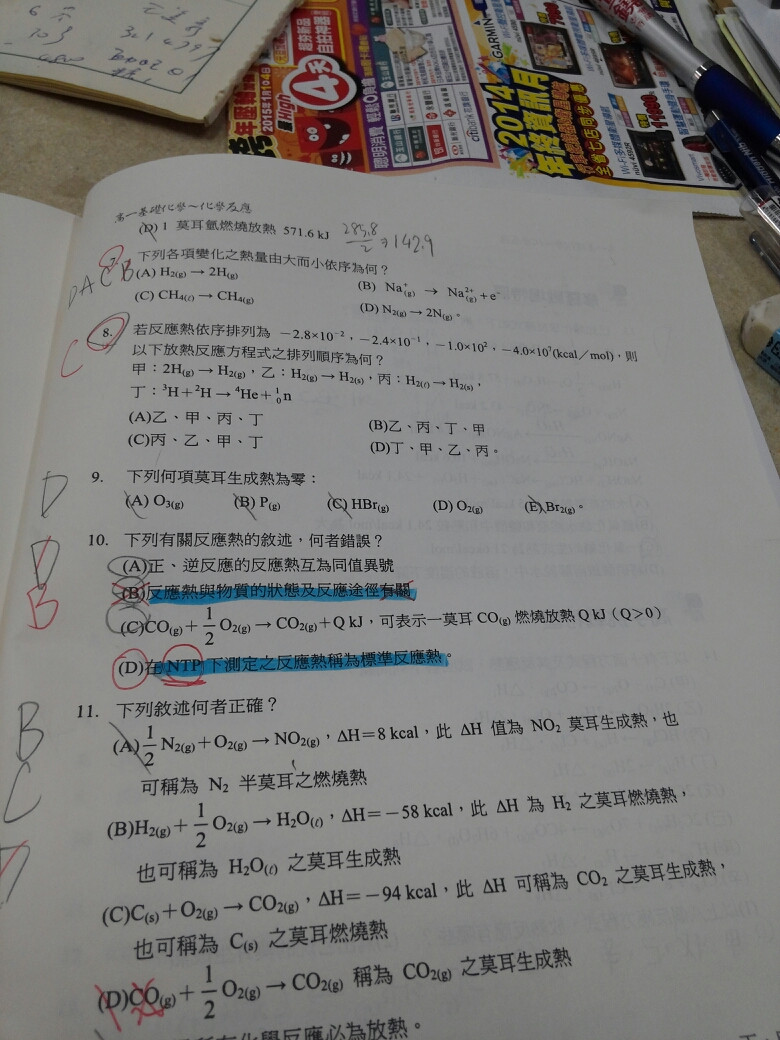 2015年1月04日
超夯新品
自拍神器
4天
聰明消費 輕鬆0負擔
citibank
GARMIN
2014
年終資訊月
全省七店同步優惠
高一基礎化學~化學反應
(D) 1 莫耳氫燃燒放熱 571.6 kJ
285.8/2 ⇒ 142.9
DACB
7. 下列各項變化之熱量由大而小依序為何？
(A) H₂(g) → 2H(g) (B) Na⁺(g) → Na²⁺(g) + e⁻
(C) CH₄(ℓ) → CH₄(g) (D) N₂(g) → 2N(g)。
C
8. 若反應熱依序排列為 −2.8×10⁻²，−2.4×10⁻¹，−1.0×10²，−4.0×10⁷(kcal／mol)，則
以下放熱反應方程式之排列順序為何？
甲：2H(g) → H₂(g)，乙：H₂(g) → H₂(s)，丙：H₂(ℓ) → H₂(s)，
丁：³H + ²H → ⁴He + ¹₀n
(A)乙、甲、丙、丁 (B)乙、丙、丁、甲
(C)丙、乙、甲、丁 (D)丁、甲、乙、丙。
D
9. 下列何項莫耳生成熱為零：
(A) O₃(g) (B) P(g) (C) HBr(g) (D) O₂(g) (E) Br₂(g)。
D
B
10. 下列有關反應熱的敘述，何者錯誤？
(A)正、逆反應的反應熱互為同值異號
(B)反應熱與物質的狀態及反應途徑有關
(C)CO(g) + 1/2 O₂(g) → CO₂(g) + Q kJ，可表示一莫耳 CO(g) 燃燒放熱 Q kJ（Q＞0）
(D)在 NTP 下測定之反應熱稱為標準反應熱。
B
C
11. 下列敘述何者正確？
(A) 1/2 N₂(g) + O₂(g) → NO₂(g)，ΔH＝8 kcal，此 ΔH 值為 NO₂ 莫耳生成熱，也
可稱為 N₂ 半莫耳之燃燒熱
(B)H₂(g) + 1/2 O₂(g) → H₂O(ℓ)，ΔH＝−58 kcal，此 ΔH 為 H₂ 之莫耳燃燒熱，
也可稱為 H₂O(ℓ) 之莫耳生成熱
(C)C(s) + O₂(g) → CO₂(g)，ΔH＝−94 kcal，此 ΔH 可稱為 CO₂ 之莫耳生成熱，
也可稱為 C(s) 之莫耳燃燒熱
(D)CO(g) + 1/2 O₂(g) → CO₂(g) 稱為 CO₂(g) 之莫耳生成熱
化學反應必為放熱。